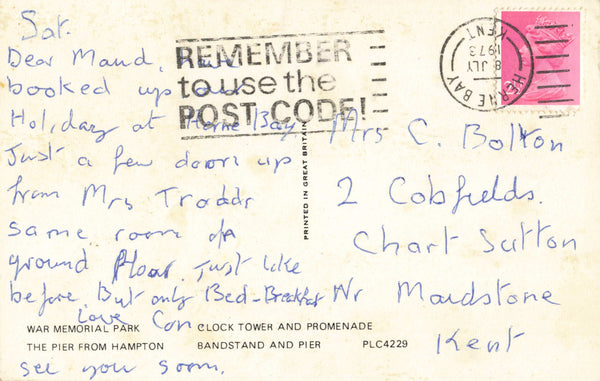 Sat.
Dear Maud,
booked up our
Holiday at Herne Bay
Just a few doors up
from Mrs Trodds
same room
ground floor. Just like
before. But only Bed-Breakfast
Love Con
see you soon.
REMEMBER
to use the
POST CODE!
HERNE BAY
KENT
8 JLY
1973
PRINTED IN GREAT BRITAIN
Mrs C. Bolton
2 Cobfields.
Chart Sutton
Nr Maidstone
Kent
WAR MEMORIAL PARK CLOCK TOWER AND PROMENADE
THE PIER FROM HAMPTON BANDSTAND AND PIER PLC4229